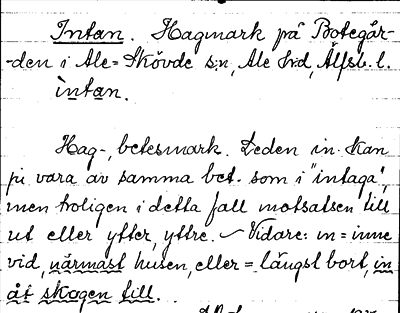 Intan. Hagmark på Botegår-
-den i Ale=Skövde s:n, Ale hd, Älfsb. l.
intan.
Hag-, betesmark. Leden in- kan
ju vara av samma bet. som i "intaga",
men troligen i detta fall motsatsen till
ut eller ytter, yttre. – Vidare: in = inne
vid, närmast husen, eller = längst bort, in
åt skogen till.